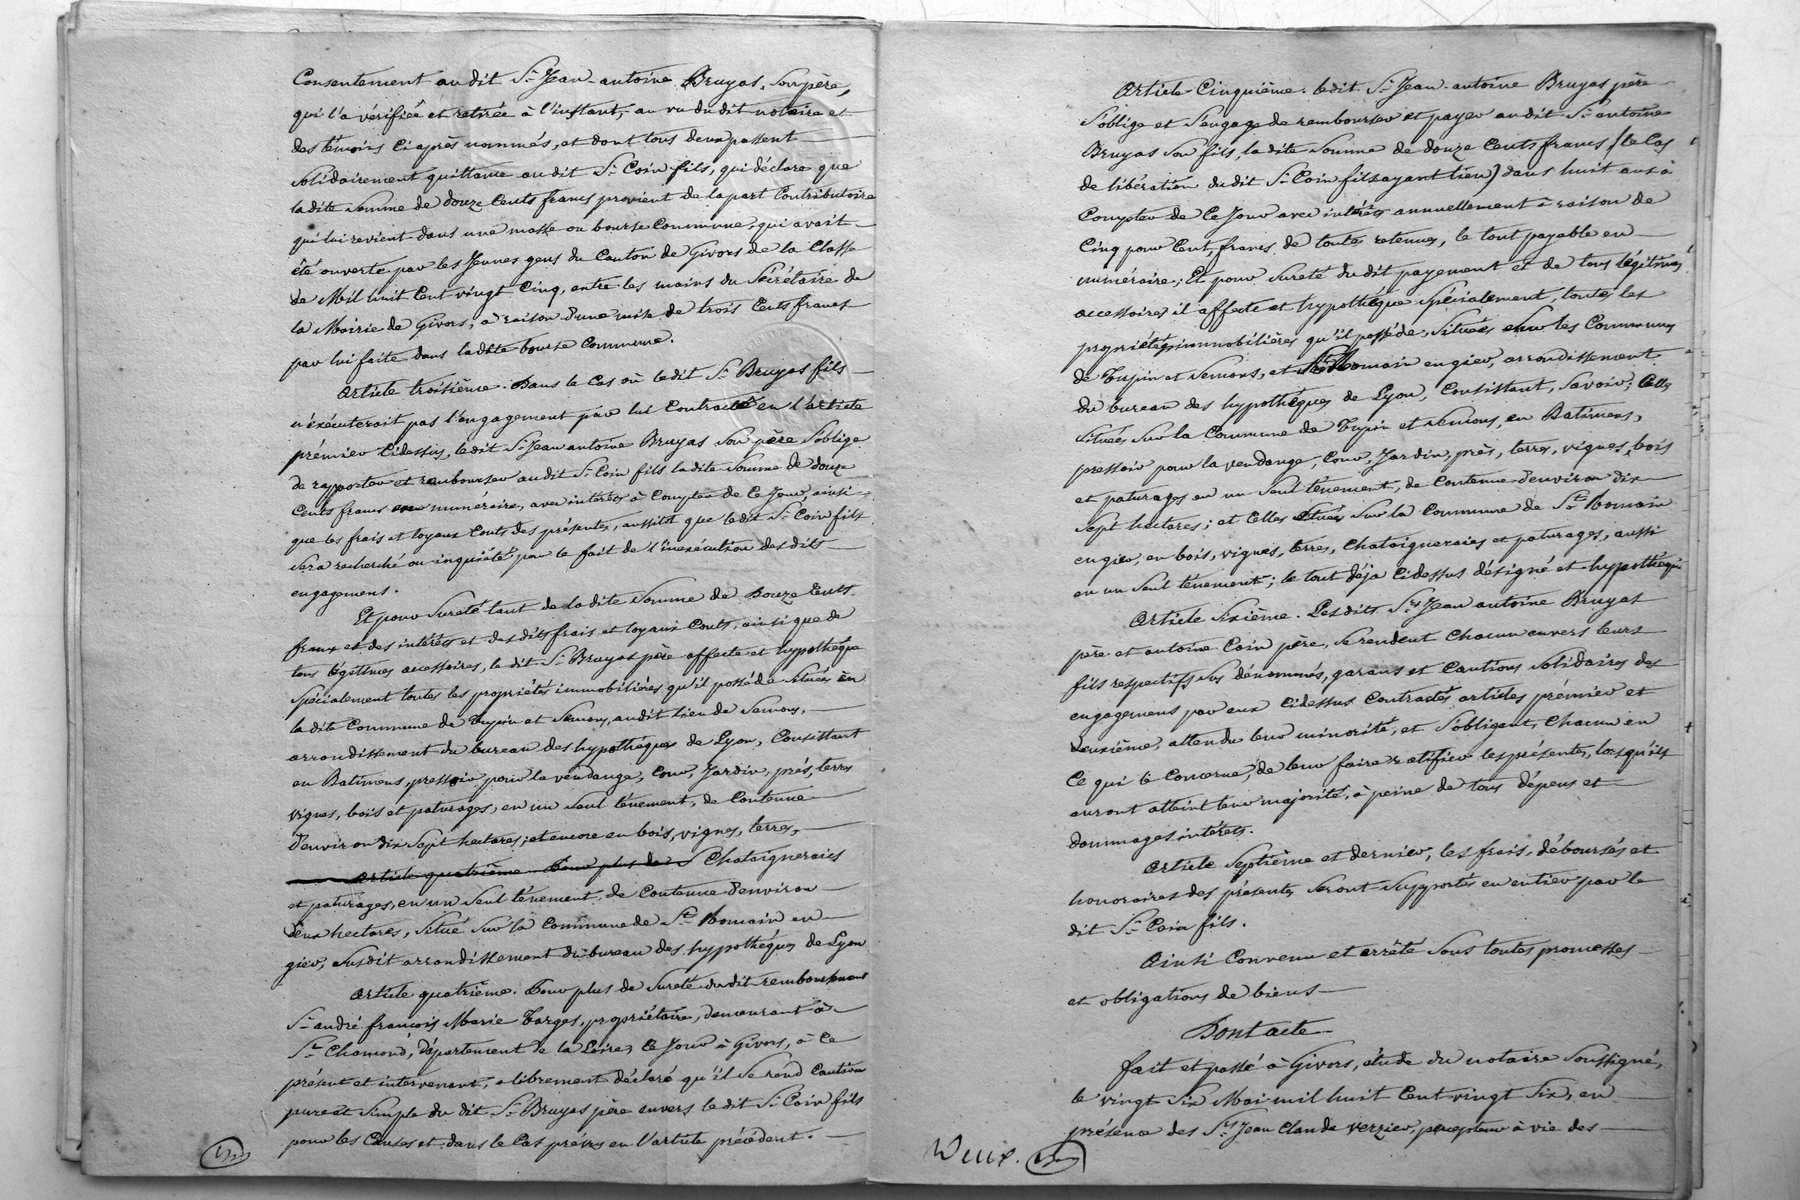 Consentement au dit Sr Jean-antoine Bruyas, Son père,
qui l'a vérifiée et retirée à l'instant, au vu du dit notaire et
des témoins ci après nommés, et dont tous deux passent
solidairement quittance au dit Sr Coin fils, qui déclare que
la dite Somme de douze Cents francs provient de la part Contributoire
qui lui revient dans une masse ou bourse Commune, qui avait
été ouverte par les Jeunes gens du Canton de Givors de la Classe
de Mil huit Cent vingt Cinq, entre les mains du Sécrétaire de
la Mairie de Givors, à raison d'une mise de trois Cents francs
par lui faite dans ladite bourse Commune.
Article troisième. Dans le Cas où ledit Sr Bruyas fils
n'éxécuterait pas l'engagement par lui Contracté en l'article
prémier Cidessus, ledit Sr Jean antoine Bruyas Son père S'oblige
de rapporter et rembourser au dit Sr Coin fils la dite Somme de douze
Cents francs en numéraire, avec intérêts à Compter de Ce Jour, ainsi
que les frais et loyaux Couts des présentes, aussitot que ledit Sr Coin fils
Sera recherché ou inquiété pour le fait de l'inexécution des dits
engagemens.
Et pour Sureté tant de la dite Somme de Douze Cents
francs et des intérêts et des dits frais et loyaux Couts, ainsi que de
tous légitimes accessoires, le dit Sr Bruyas père affecte et hypothèque
Spécialement toutes les propriétés immobilières qu'il possède Situées en
la dite Commune de Tupin et Semons, au dit lieu de Semons,
arrondissement du bureau des hypothèques de Lyon, Consistant
en Batimens, pressoir pour la vendange, Cour, Jardin, prés, terres
vignes, bois et paturages, en un Seul tènement, de Contenue
d'environ dix Sept hectares; et encore en bois, vignes, terres,
article quatrième. Pour plus de S Chataigneraies
et paturages, en un Seul tènement, de Contenue d'environ
deux hectares, Situé Sur la Commune de St Romain en
gier, susdit arrondissement du bureau des hypothèques de Lyon
Article quatrième. Pour plus de Sureté du dit remboursement
Sr andré françois Marie Farges, propriétaire, demeurant à
St Chamond, département de la Loire, Ce Jour à Givors, à Ce
présent et intervenant, a librement déclaré qu'il Se rend Caution
pure et Simple du dit Sr Bruyas père envers le dit Sr Coin fils
pour les Causes et dans le Cas prévus en l'article précédent.
Article Cinquième. ledit Sr Jean-antoine Bruyas père
S'oblige et S'engage de rembourser et payer au dit Sr antoine
Bruyas Son fils, la dite Somme de douze Cents francs (le Cas
de libération du dit Sr Coin fils ayant lieu) dans huit ans à
Compter de Ce Jour avec intérêts annuellement à raison de
Cinq pour Cent, francs de toutes retenues, le tout payable en
numéraire; Et pour Sureté du dit payement et de tous légitimes
accessoires il affecte et hypothéque Spécialement, toutes les
propriétés immobilières qu'il possède, Situées Sur les Communes
de Tupin et Semons, et St Romain en gier, arrondissement
du bureau des hypothéques de Lyon, Consistant, Savoir; Celles
Situées Sur la Commune de Tupin et Semons, en Batimens,
pressoir pour la vendange, Cour, Jardin, près, terres, vignes, bois
et paturages en un Seul tènement, de Contenue d'environ dix
Sept hectares; et Celles Situées Sur la Commune de St Romain
en gier, en bois, vignes, terres, Chataigneraies et paturages, aussi
en un Seul tènement; le tout déja Cidessus désigné et hypothéqué
Article Sixième. Les dits Srs Jean antoine Bruyas
père et antoine Coin père, Se rendent Chacun envers leurs
fils respectifs, Sus dénommés, garans et Cautions Solidaires des
engagemens par eux Cidessus Contractés articles prémier et
deuxième, attendu leur minorité, et S'obligent, Chacun en
Ce qui le Concerne, de leur faire ratifier les présentes, lorsqu'ils
auront atteint leur majorité, à peine de tous dépens et
dommages intérêts.
Article Septième et dernier, les frais, déboursés et
honoraires des présentes Seront Supportés en entier par le
dit Sr Coin fils.
Ainsi Convenu et arrêté Sous toutes promesses
et obligations de biens
Dont acte
fait et passé à Givors, étude du notaire Soussigné,
le vingt Six Mai mil huit Cent vingt Six, en
présence des Srs Jean Claude Verzier, percepteur à vie des
Deux.